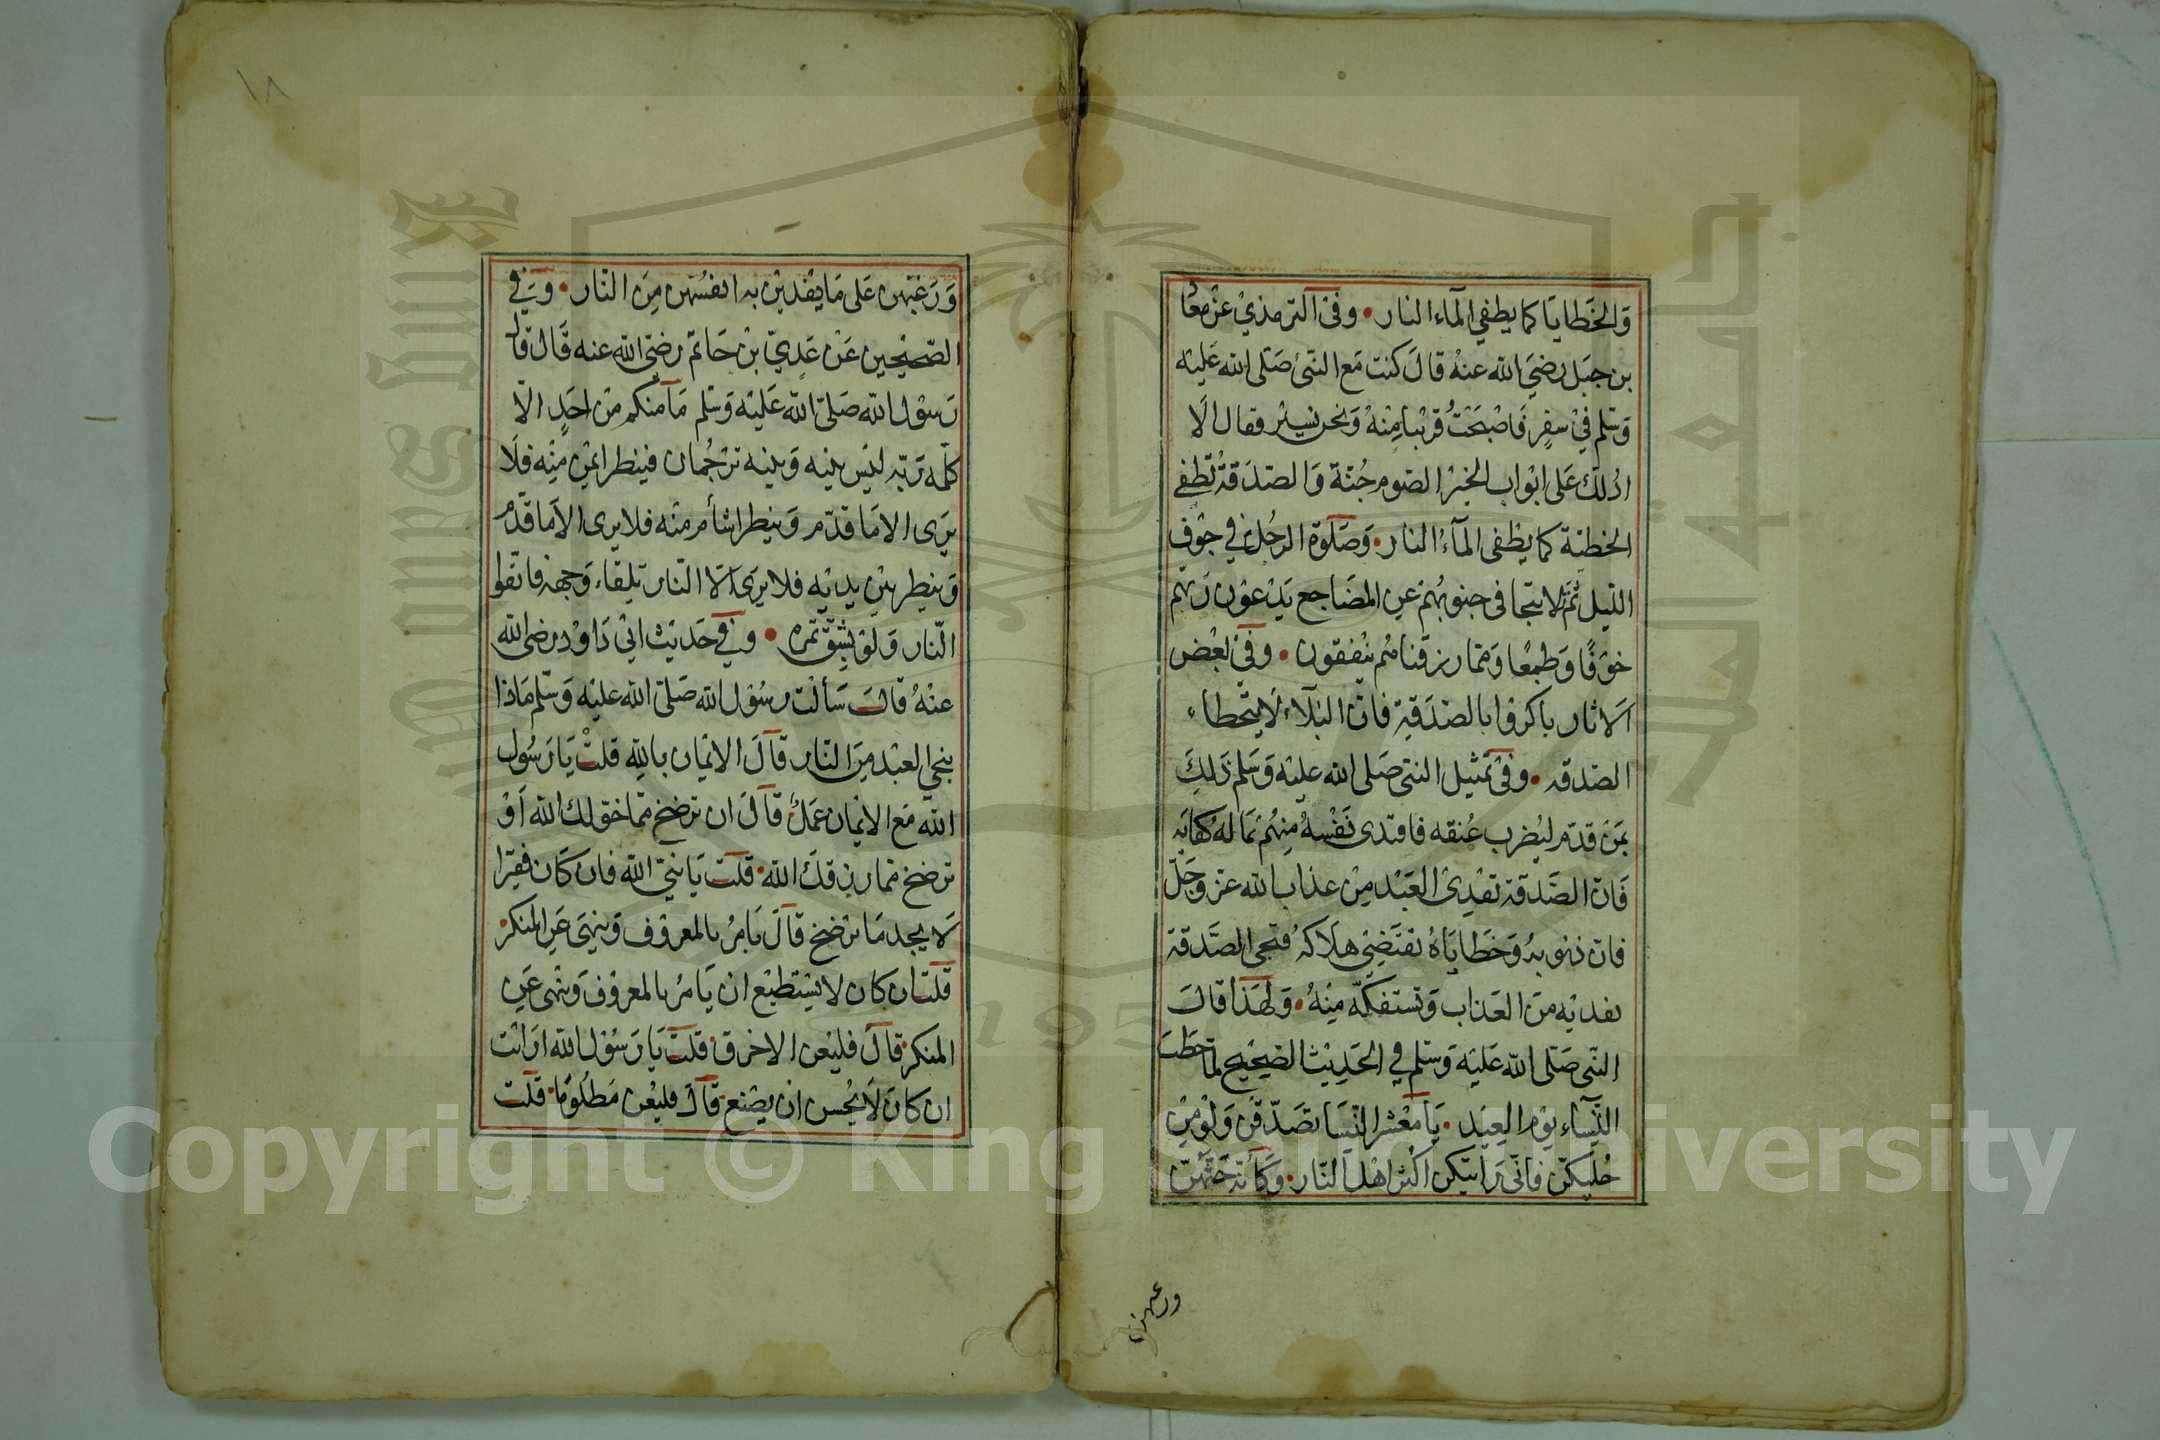 وَالخَطايَا كما يطفي المآء النار • وفى الترمذيْ عَنْ معُا
بن جبَل رضيَ الله عنهُ قالَ كنت مَع النّبى صَلى الله عَليْه
وَسلم فيْ سفِر فَاصْبَحْتُ قرْيْباً مِنهْ وَنحن نسيرْ فقال الَا
ادُلكَ عَلى ابْواب الخيْر الصَوم جُنة وَالصّدَقةُ تطْفي
الخطئة كما يطْفى المآءُ النار • وَصَلوة الرجُل في جوْفِ
اللّيل ثمّ تلا تتجافى جنوبُهمْ عَنِ المضَاجع يَدْعوْن رَبهم
خوْفًا وَطمعًا وَممّا رزقناهُم ينْفقون • وفي بعْض
الاثار باكروْا بالصّدَقة فانّ البَلآء لَا يتخطاء
الصّدقه • وفى تمثيل النبى صَلى الله عليْه وَسَلم ذَلكِ
بمَنْ قدّم ليُضرب عُنقه فافتدى نَفْسهُ مِنهُم بمَا لهُ كفايَه
فَانّ الصَّدقة تفْدِى العَبْد مِنْ عذاب الله عزّ وجَلّ
فانّ ذنوبهُ وَخَطايَاهُ تقتَضِى هلَاكهُ فتجى الصَّدقة
تفديْه منَ العَذاب وَتستفكّه مِنْهُ • وَلهَذَا قالَ
النّبى صَلى الله عَليْه وَسلم في الحَدِيْث الصّحيْح لمّا خطَبَ
النّسآء يوْم العِيد • يَا مَعْشر النّسَا تصَدّقْن وَلوْ منْ
حُليّكنّ فَانّي رَايتكن اكثر اهْل النّار • وَكأنّه حَثّهنّ
ورغبهن
١٨
وَرَغبَهن عَلى مَا يفْديْن به انفسُهن مِنَ النّار • وَفي
الصّحيْحين عَنْ عَديّ بنْ حَاتمْ رضي الله عنه قَال قالَ
رَسوْل الله صَلىّ الله عَليْه وَسْلم مَا منْكم مْن احَدٍ الّا
كلّمه رَبّه ليْس بيْنه وَبيْنه ترْجُمان فينظر ايمْن مِنْه فلَا
يرَى الا مَا قدّم وَينظر اشأم منْه فلا يرى الاّ مَا قدّم
وَينظر بيْن يديْه فلا يرَى الّا النّار تلقاء وَجهه فاتّقوا
النّار وَلوْ بشِقّ تمْره • وَفي حَديْث ابيْ دَاوْد رضى الله
عنْهُ قَالَ سَألْت رسُوْل الله صَلىّ الله عليْه وَسْلم مَاذا
ينجى العبْد مِنَ النّار قالَ الايْمان بالله قلتْ يَا رَسُول
الله مَع الايْمان عمَلٌ قالَ ان ترْضخ ممّا خوّلك الله اَوْ
ترْضخ ممّا رزقكَ الله • قلت يَا نبيّ الله فان كَان فقيْرا
لَا يجد مَا يرْضخ قالَ يَامرُ بالمعروْف وَينهَى عَنِ المنكر •
قلت ان كان لا يسْتطيْع انْ يَامرُ بالمعروْف وَينْهى عَنِ
المنكر • قالَ فليْعن الاخرق • قلت يَا رَسُوْل الله ارَايْت
ان كانَ لَا يحُسن انْ يصْنع • قالَ فليُعْن مَظلوُمًا • قلت